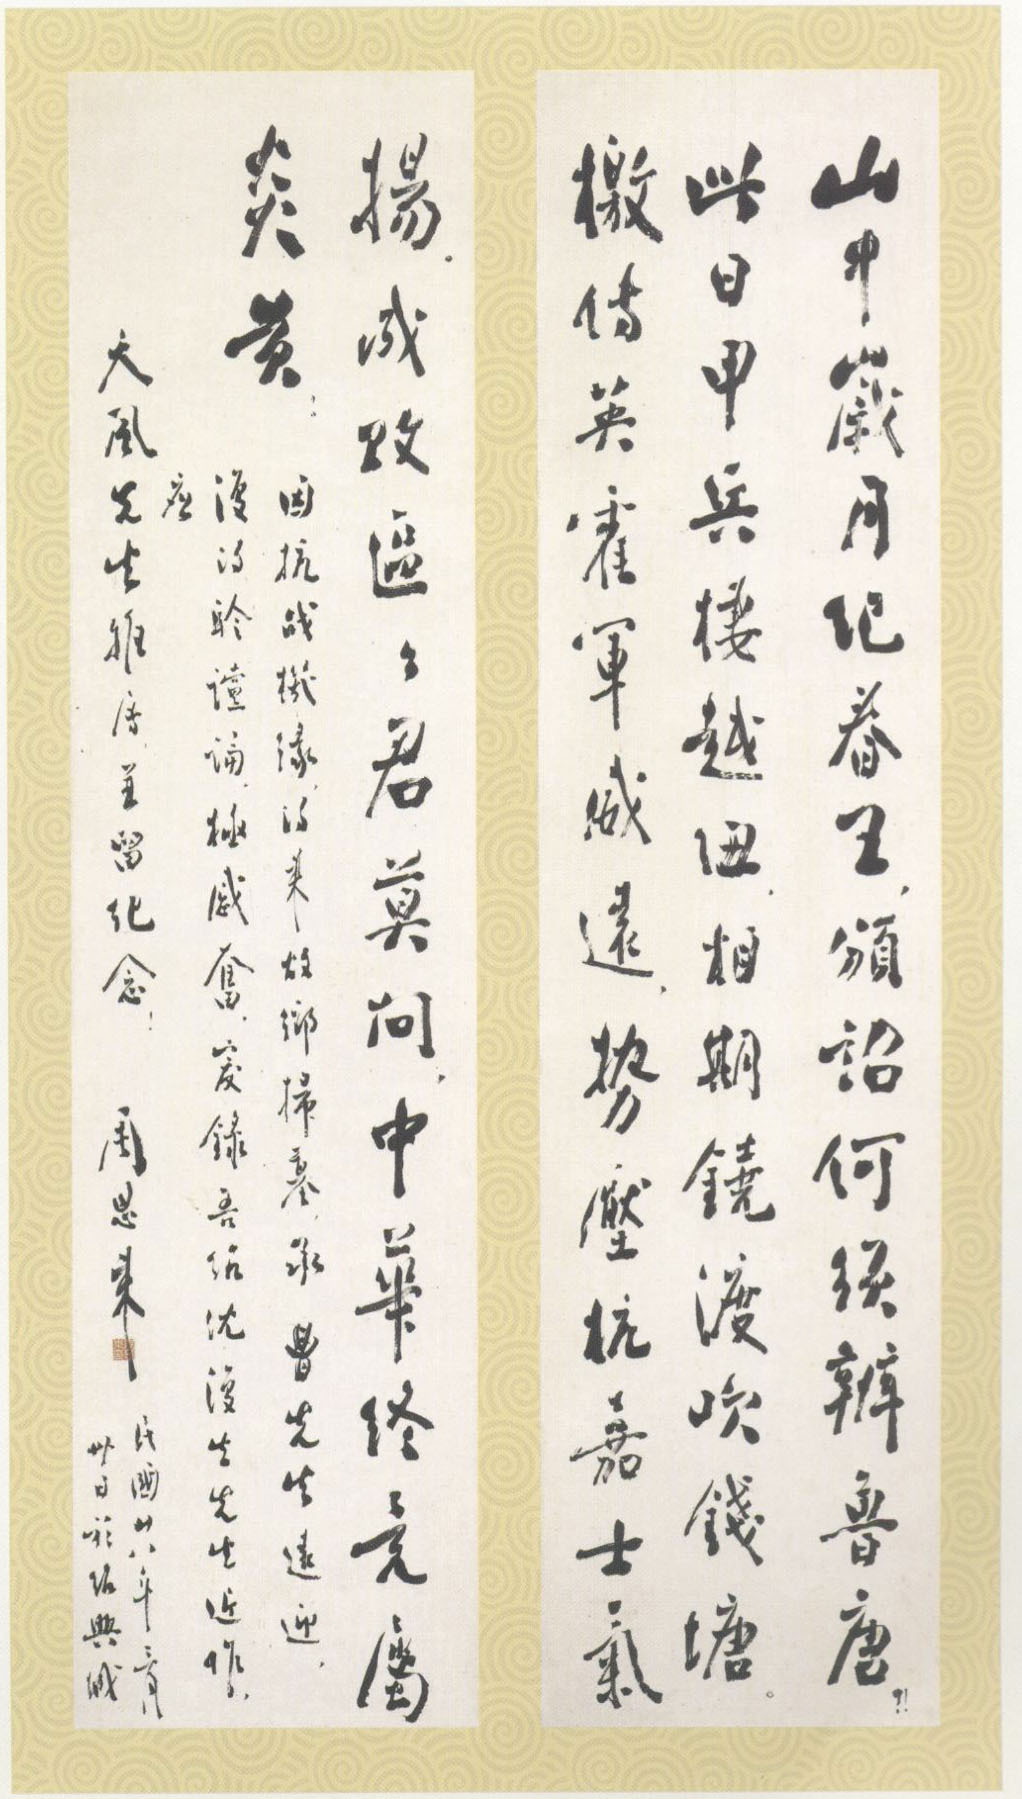 山中歲月紀春王，頒詔何須辨魯唐!!
此日甲兵棲越甸，相期鐃渡吹錢塘。
檄傳英霍軍威遠，勢壓杭嘉士氣
揚。成敗區區君莫問，中華終竟屬
炎黃：
因抗战機緣，得來故鄉掃墓，承 曹先生遠迎，
復得聆讜論，極感奮，爰錄吾紹沈復生先生近作，
應
天風先生雅屬，並留紀念： 周恩來
民國廿八年三月
卅日於紹興城